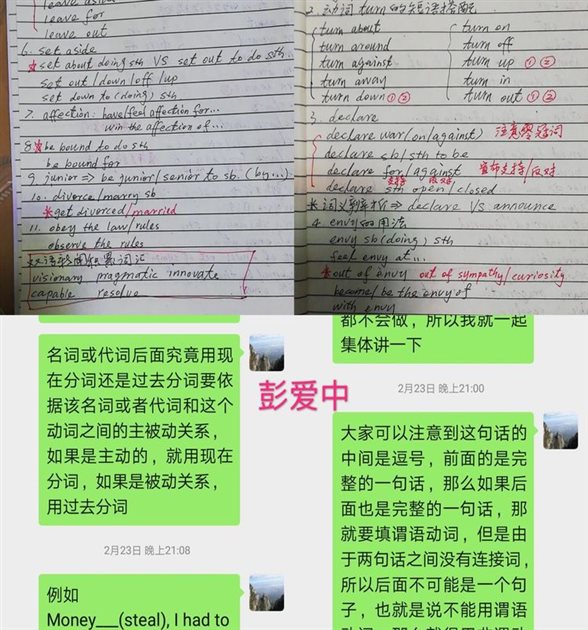 leave aside
leave for
leave out
6. set aside
☆set about doing sth VS set out to do sth
set out/down/off/up
set down to (doing) sth
7. affection: have/feel affection for...
win the affection of...
8☆be bound to do sth
be bound for
9. junior => be junior/senior to sb. (by...)
10. divorce/marry sb
*get divorced/married
11. obey the law/rules
observe the rules
visionary pragmatic innovate
capable resolve
2. 动词 turn的短语搭配
turn about
turn around
turn against
turn away
turn down①②
turn on
turn off
turn up ①②
turn in
turn out ①②
3. declare
declare war (on/against) 注意零冠词
declare sb/sth to be
declare for/against 宣布支持/反对
支持 反对
declare sth open/closed
*词义辨析=> declare VS announce
4. envy的用法
envy sb (doing) sth
feel envy at...
*out of envy out of sympathy/curiosity
become/be the envy of
with envy
名词或代词后面究竟用现
在分词还是过去分词要依
据该名词或者代词和这个
动词之间的主被动关系，
如果是主动的，就用现在
分词，如果是被动关系，
用过去分词
2月23日 晚上21:08
例如
Money___(steal), I had to
彭爱中
都不会做，所以我就一起
集体讲一下
2月23日 晚上21:00
大家可以注意到这句话的
中间是逗号，前面的是完
整的一句话，那么如果后
面也是完整的一句话，那
就要填谓语动词，但是由
于两句话之间没有连接词，
所以后面不可能是一个句
子，也就是说不能用谓语